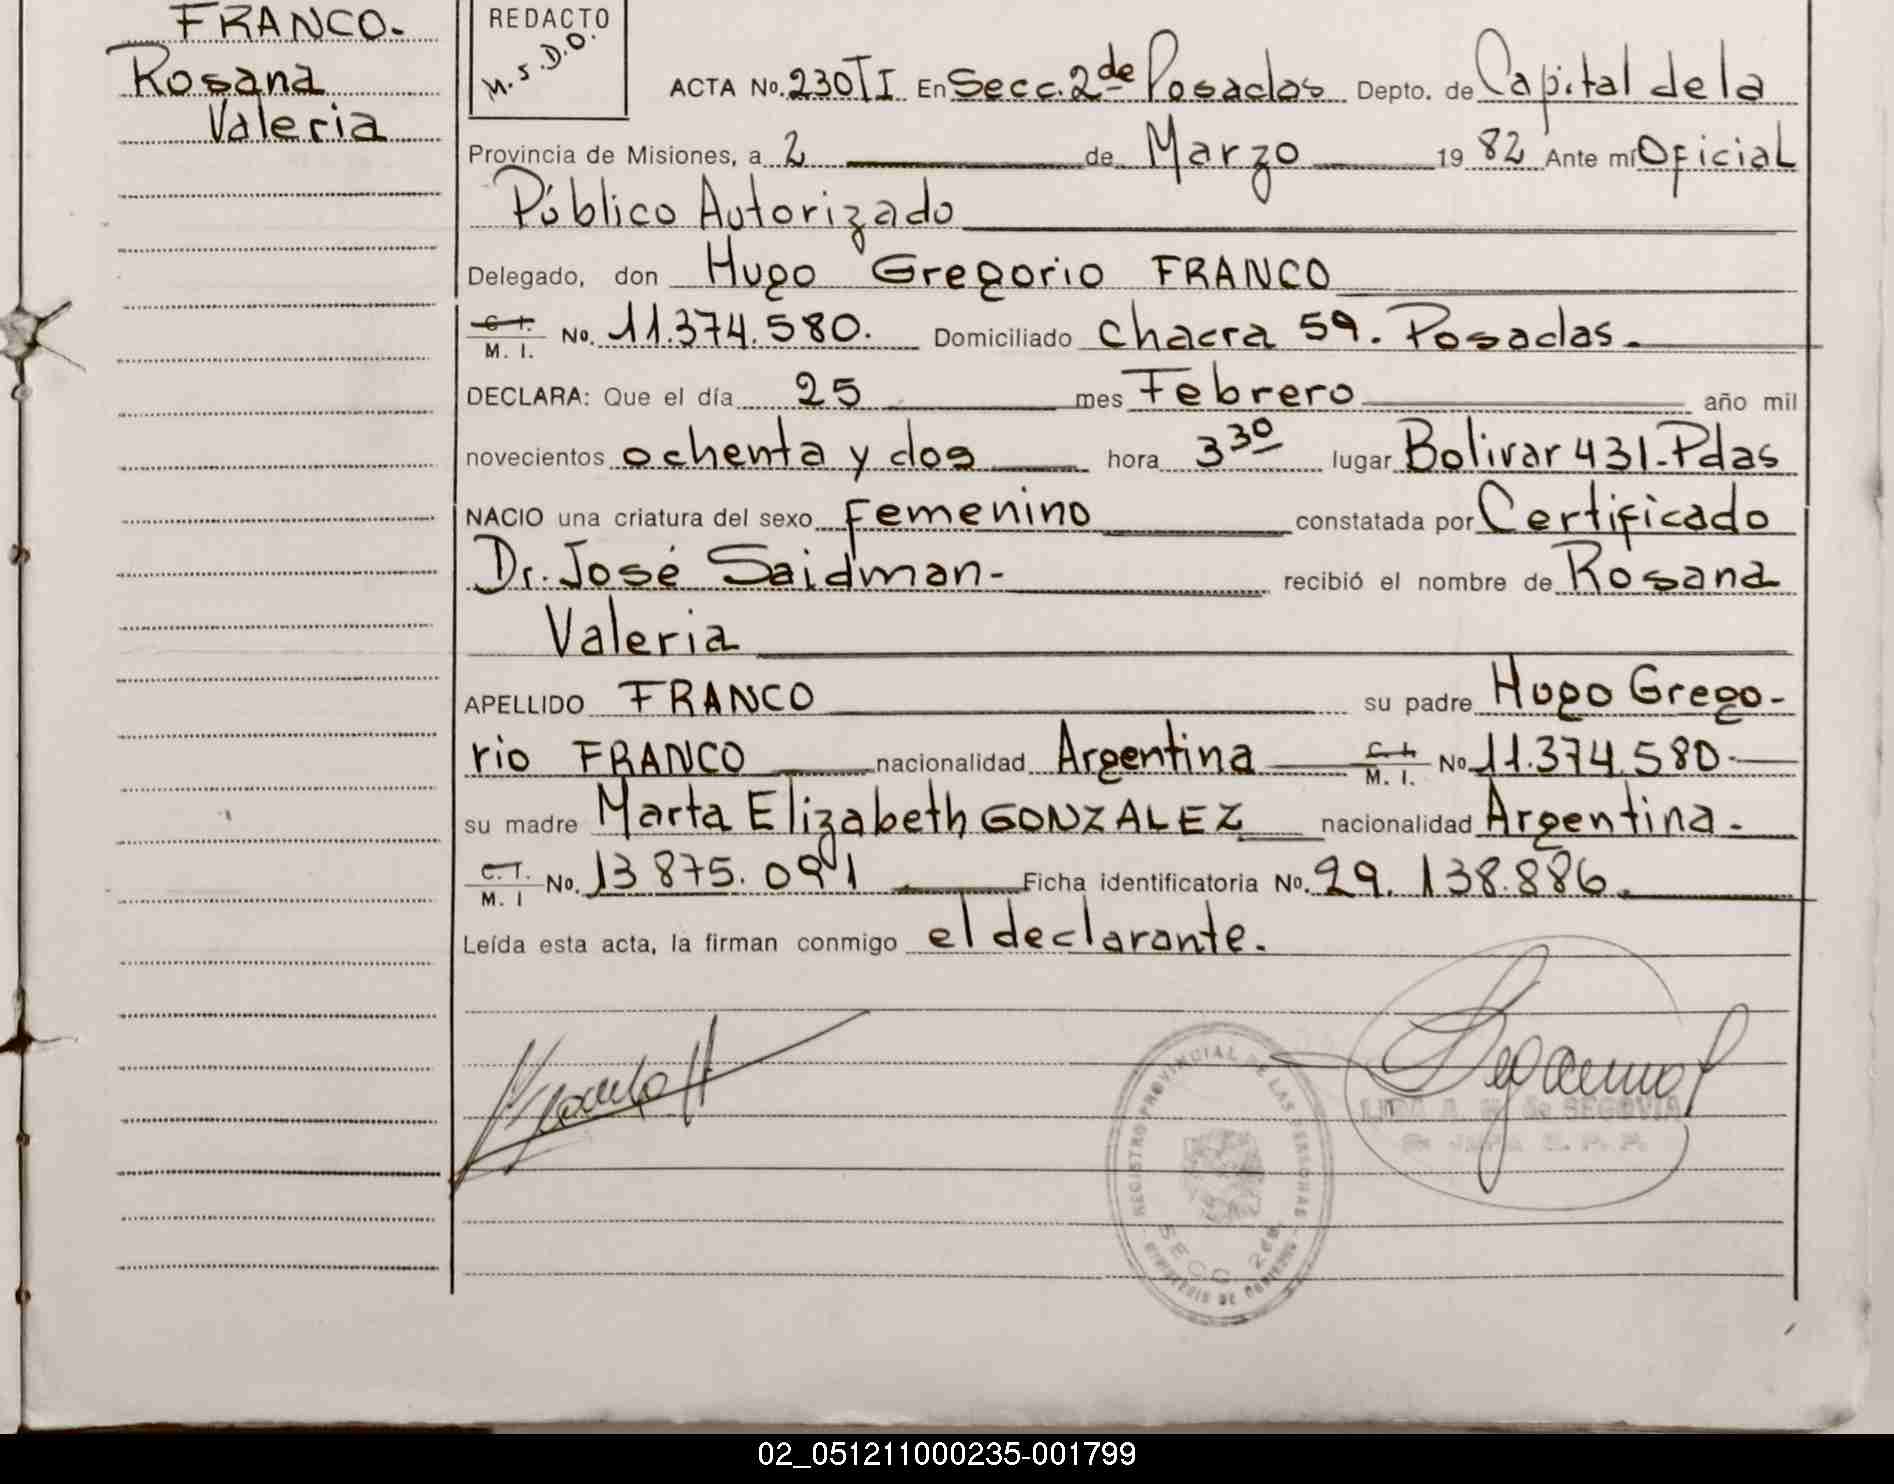 FRANCO.
Rosana
Valeria
REDACTO
M.S.D.O.
ACTA No. 230TI En Secc. 2da de Posadas Depto. de Capital de la
Provincia de Misiones, a 2 de Marzo 1982 Ante mí Oficial
Público Autorizado
Delegado, don Hugo Gregorio FRANCO
C. I.
M. I. No. 11.374.580. Domiciliado Chacra 59. Posadas.
DECLARA: Que el día 25 mes Febrero año mil
novecientos ochenta y dos hora 3 30 lugar Bolivar 431-Pdas
NACIO una criatura del sexo Femenino constatada por Certificado
Dr. José Saidman- recibió el nombre de Rosana
Valeria
APELLIDO FRANCO su padre Hugo Grego-
rio FRANCO nacionalidad Argentina C. I. M. I. No 11.374.580-
su madre Marta Elizabeth GONZALEZ nacionalidad Argentina.
C. I. M. I No. 13 875.091 Ficha identificatoria No. 29.138.886.
Leída esta acta, la firman conmigo el declarante.
REGISTRO PROVINCIAL DE LAS PERSONAS
SECC 2da.
MINISTERIO DE GOBIERNO
de SEGOVIA
02_051211000235-001799